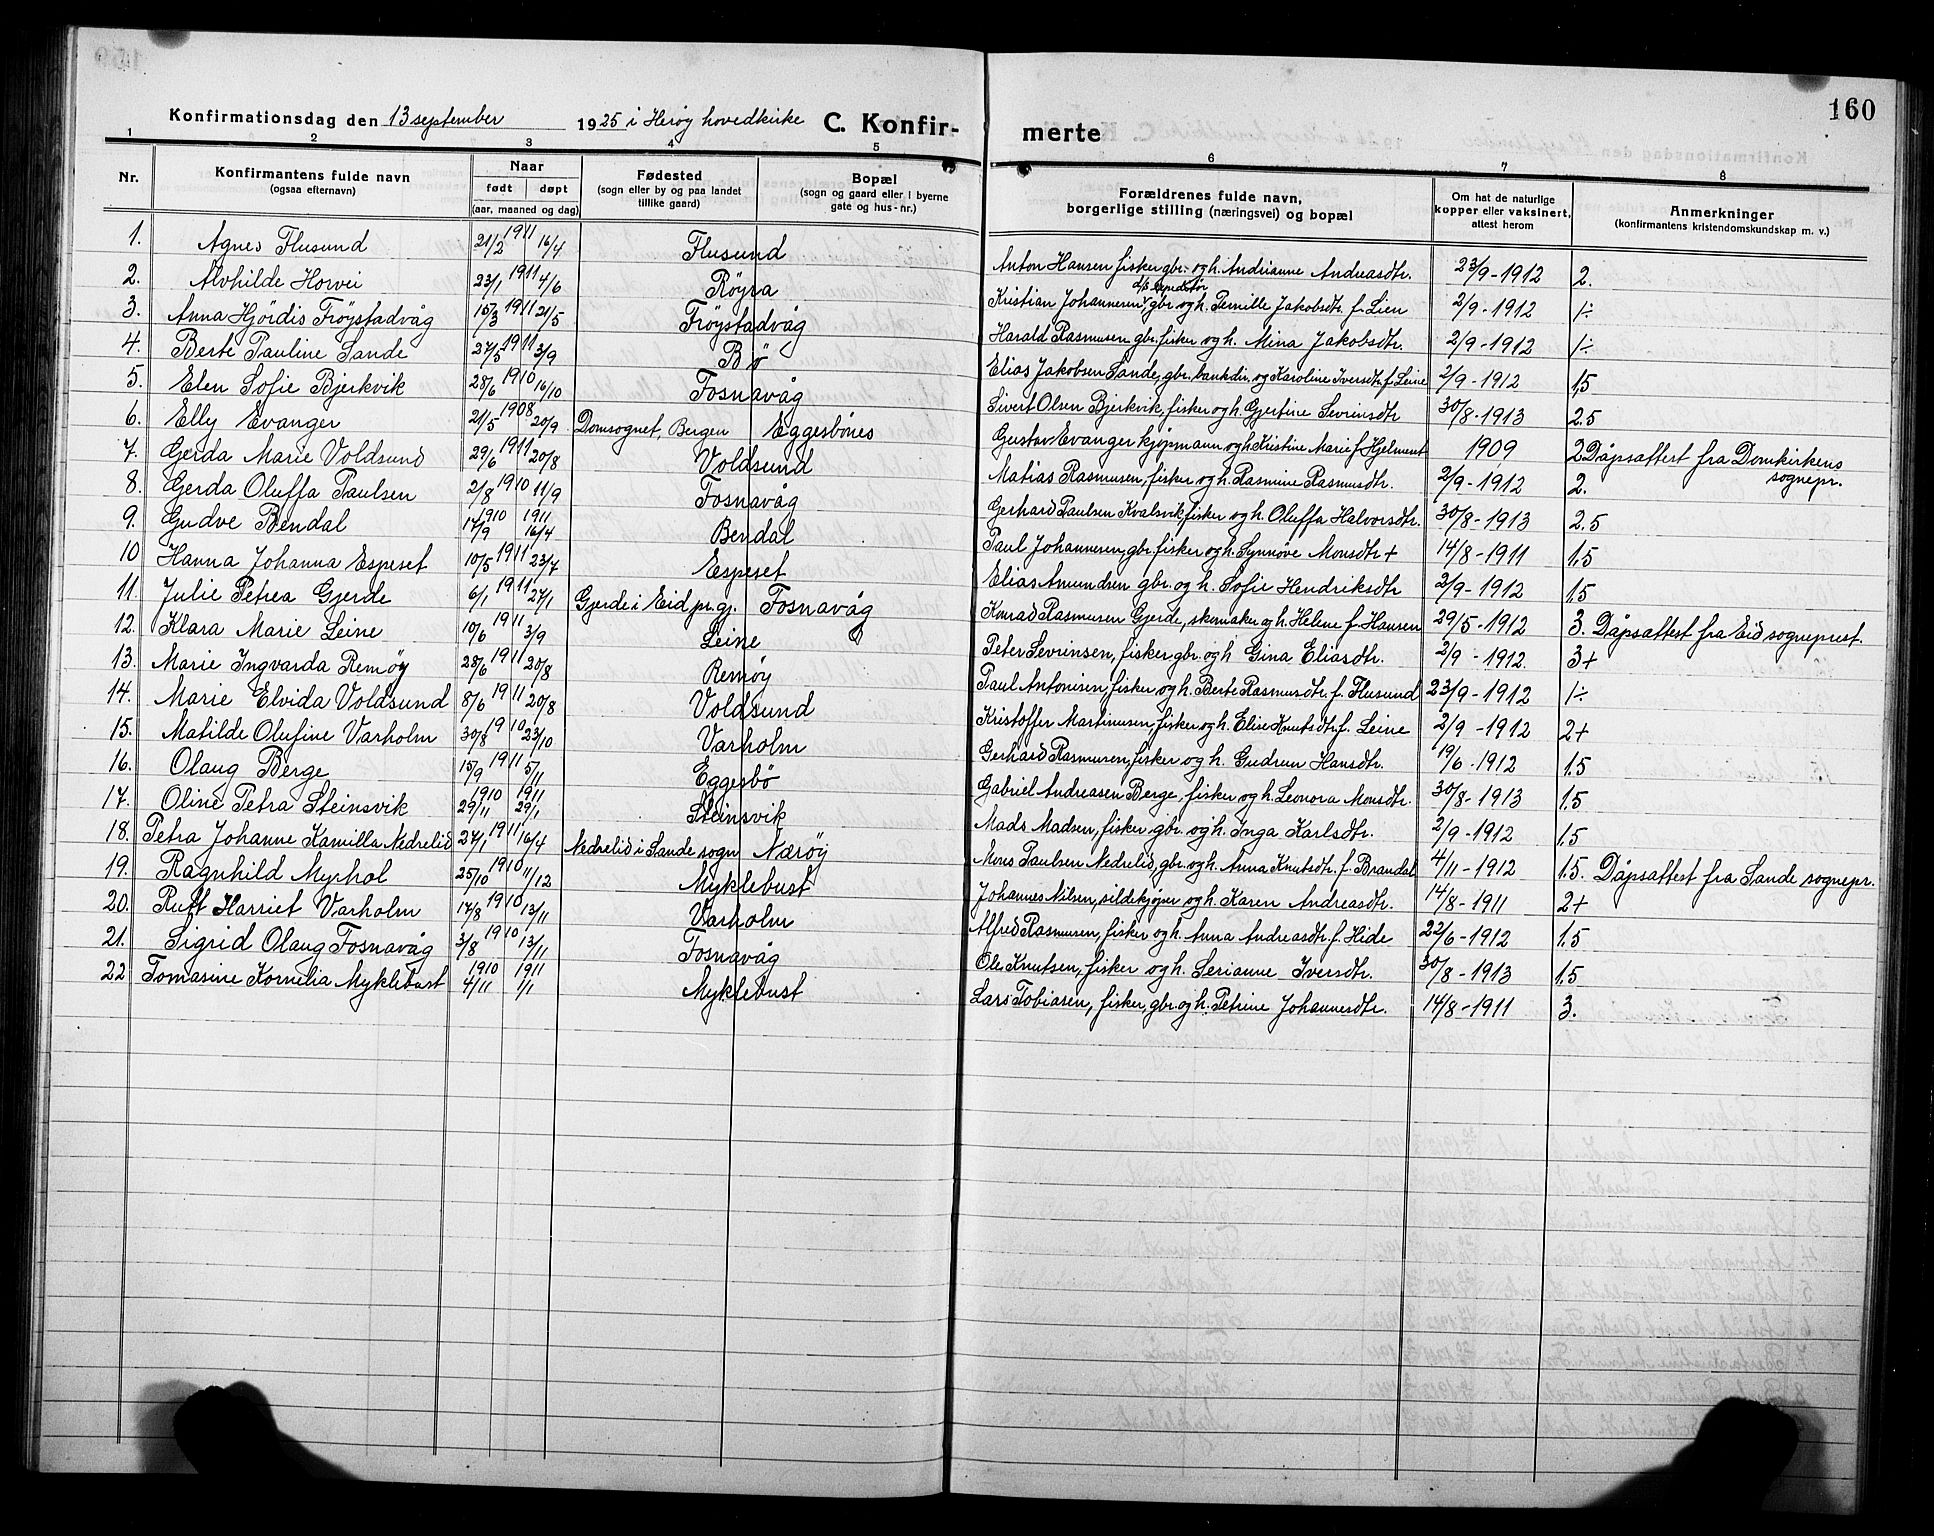 160
Konfirmationsdag den 13 september 1925 i Herøy hovedkirke C. Konfirmerte
1 2 3 4 5 6 7 8
Nr. Konfirmantens fulde navn (ogsaa efternavn) Naar født døpt (aar, maaned og dag) Fødested (sogn eller by og paa landet tillike gaard) Bopæl (sogn og gaard eller i byerne gate og hus-nr.) Forældrenes fulde navn, borgerlige stilling (næringsvei) og bopæl Om hat de naturlige kopper eller vaksinert, attest herom Anmerkninger (konfirmantens kristendomskundskap m. v.)
1. Agnes Flusund 21/2 1911 16/4 Flusund Anton Hansen fisker gbr. og h. Andrianne Andreasdtr. 23/9-1912 2.
2. Alvhilde Horvei 23/1 1911 4/6 Røyra Kristian Johannesen, gbr og h. Pernille Jakobsdtr. f. Lien 2/9-1912 1÷
3. Anna Hjördis Fröystadvåg 15/3 1911 21/5 Fröystadvåg Harald Rasmusen gbr. fisker og h. Mina Jakobsdtr. 2/9-1912 1÷
4. Berte Pauline Sande 27/5 1911 3/9 Bö Elias Jakobsen Sande, gbr. bankdir. og Karoline Iversdtr. f. Leine 2/9-1912 1,5
5. Elen Sofie Bjerkvik 28/6 1910 16/10 Fosnavåg Sivert Olsen Bjerkvik, fisker og h. Gjertine Sevrinsdtr 30/8-1913 2.5
6. Elly Evanger 21/5 1908 20/9 Domsognet, Bergen Eggesbönes Gustav Evanger kjøpmann og h. Kristine Marie f. Hjelment 1909 2 Dåpsattest fra Domkirkens sognepr.
7. Gerda Marie Voldsund 29/6 1911 20/8 Voldsund Matias Rasmusen, fisker og h. Rasmine Rasmusdtr. 2/9-1912 2.
8. Gerda Oluffa Paulsen 2/8 1910 11/9 Fosnavåg Gerhard Paulsen Kvalsvik, fisker og h. Oluffa Halvorsdtr. 30/8-1913 2.5
9. Gudve Bendal 17/9 1910 16/4 1911 Bendal Paul Johannesen, gbr. fisker og h. Synnöve Monsdtr + 14/8-1911 1,5
10 Hanna Johanna Espeset 10/5 1911 23/7 Espeset Elias Amundsen gbr. og h. Sofie Hendriksdtr 2/9-1912 1,5
11. Julie Petrea Gjerde 6/1 1911 27/1 Gjerde i Eid pr.gj. Fosnavåg Konrad Rasmusen Gjerde, skomaker og h. Helene f. Hansen 29/5-1912 3. Dåpsattest fra Eid sogneprest.
12. Klara Marie Leine 10/6 1911 3/9 Leine Peter Sevrinsen, fisker gbr. og h Gina Eliasdtr. 2/9-1912. 3+
13. Marie Ingvarda Remøy 28/6 1911 20/8 Remøy Paul Antonisen, fisker og h. Berte Rasmusdtr. f. Flusund 23/9-1912 1÷
14. Marie Elvida Voldsund 8/6 1911 20/8 Voldsund Kristoffer Martinusen, fisker og h. Eline Knutsdtr. f. Leine 2/9-1912 2+
15. Matilde Olufine Varholm 30/8 1910 23/10 Varholm Gerhard Rasmusen, fisker og h. Gudrun Hansdtr. 19/6-1912 1,5
16. Olaug Berge 15/9 1911 5/11 Eggesbö Gabriel Andreasen Berge, fisker og h. Leonora Monsdtr. 30/8-1913 1,5
17. Oline Petra Steinsvik 29/11 1910 29/1 1911 Steinsvik Mads Madsen, fisker gbr. og h. Inga Karlsdtr. 2/9-1912 1,5
18. Petra Johanne Kamilla Nedrelid 27/1 1911 16/4 Nedrelid i Sande sogn Nærøy Mons Paulsen Nedrelid, gbr. og h. Anna Knutsdtr. f. Brandal 4/11-1912 1.5. Dåpsattest fra Sande sognepr.
19. Ragnhild Myrhol 25/10 1910 11/12 Myklebust Johannes Nilsen, sildekjöper og h. Karen Andreasdtr. 14/8-1911 2+
20. Rutt Harriet Varholm 17/8 1910 13/11 Varholm Alfred Rasmusen, fisker og h. Anna Andreasdtr. f. Hide 22/6-1912 1,5
21. Sigrid Olaug Fosnavåg 3/8 1910 13/11 Fosnavåg Ole Knutsen, fisker og h. Serianne Iversdtr. 30/8-1913 1,5
22 Tomasine Kornelia Myklebust 4/11 1910 1/1 1911 Myklebust Lars Tobiasen, fisker, gbr. og h. Petrine Johannesdtr. 14/8-1911 3.